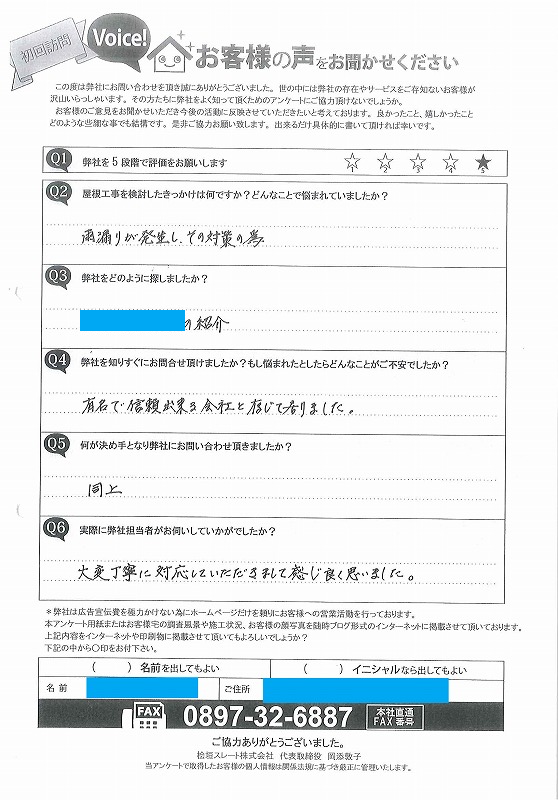 初回訪問
Voice!
お客様の声をお聞かせください
この度は弊社にお問い合わせを頂き誠にありがとうございました。世の中には弊社の存在やサービスをご存知ないお客様が
沢山いらっしゃいます。その方たちに弊社をよく知って頂くためのアンケートにご協力頂けないでしょうか。
お客様のご意見をお聞かせいただき今後の活動に反映させていただきたいと考えております。良かったこと、嬉しかったこと
どのような些細な事でも結構です。是非ご協力お願い致します。出来るだけ具体的に書いて頂ければ幸いです。
Q1 弊社を5段階で評価をお願いします
1 2 3 4 5
Q2 屋根工事を検討したきっかけは何ですか?どんなことで悩まれていましたか?
雨漏りが発生し、その対策の為
Q3 弊社をどのように探しましたか?
の紹介
Q4 弊社を知りすぐにお問合せ頂けましたか?もし悩まれたとしたらどんなことがご不安でしたか?
有名で信頼出来る会社と存じて居りました。
Q5 何が決め手となり弊社にお問い合わせ頂きましたか?
同上
Q6 実際に弊社担当者がお伺いしていかがでしたか?
大変丁寧に対応していただきまして感じ良く思いました。
*弊社は広告宣伝費を極力かけない為にホームページだけを頼りにお客様への営業活動を行っております。
本アンケート用紙またはお客様宅の調査風景や施工状況、お客様の顔写真を随時ブログ形式のインターネットに掲載させて頂いております。
上記内容をインターネットや印刷物に掲載させて頂いてもよろしいでしょうか?
下記の中から〇印をお付下さい。
( )名前を出してもよい ( )イニシャルなら出してもよい
名前 ご住所
FAX 0897-32-6887 本社直通 FAX番号
ご協力ありがとうございました。
桧垣スレート株式会社 代表取締役 岡添敦子
当アンケートで取得したお客様の個人情報は関係法規に基づき厳正に管理いたします。